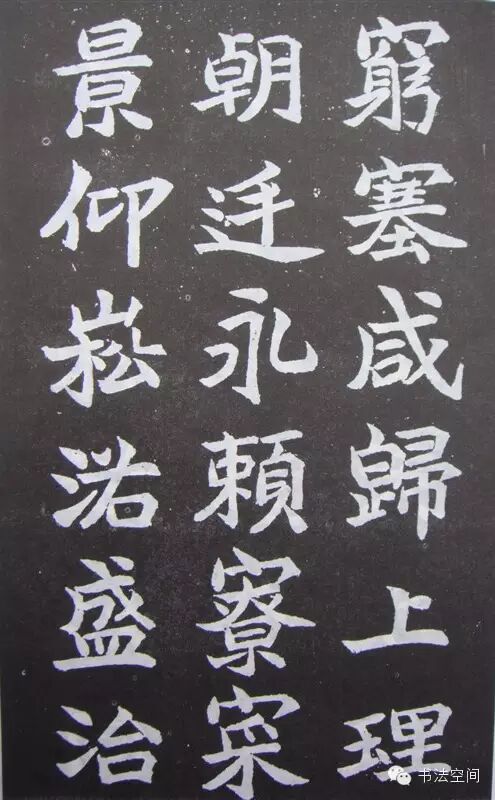 窮塞咸歸上理
朝廷永賴寮寀
景仰崧洛盛治
书法空间